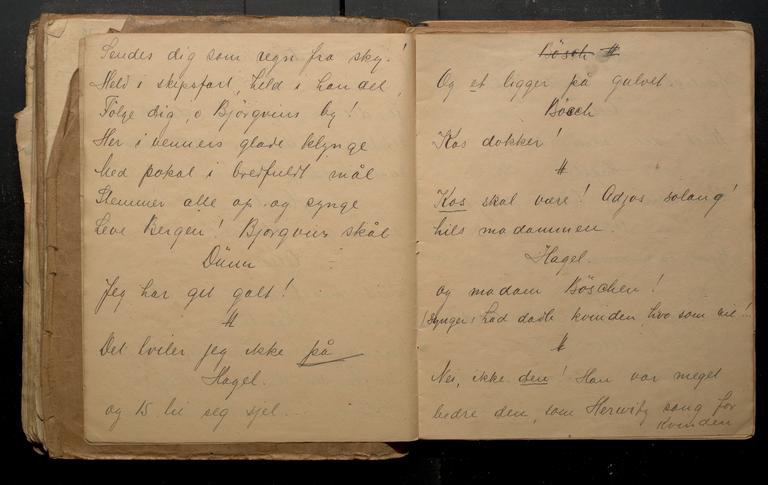 Sendes dig som regn fra sky!
Held i skipsfart, held i handel
Følge dig, o Bjørgvins by!
Her i venners glade klynge
Med pokal i bredfuldt mål
Stemmer alle op og synge
Leve Bergen! Bjørgvins skål
Dünn
Jeg har get galt!
#
Det tviler jeg ikke på
Hagel.
og 15 til seg sjel...
Bösch #
Og et ligger på gulvet.
Bösch
Kos dokker!
#
Kos skal være! Adjøs solang!
hils madammen.
Hagel.
og madam Böschen!
(synger: Lad dadle kvinden, hvo som vil!..
#
Nei, ikke den! Han var meget
bedre den, som Herwitz song for
Kvinden